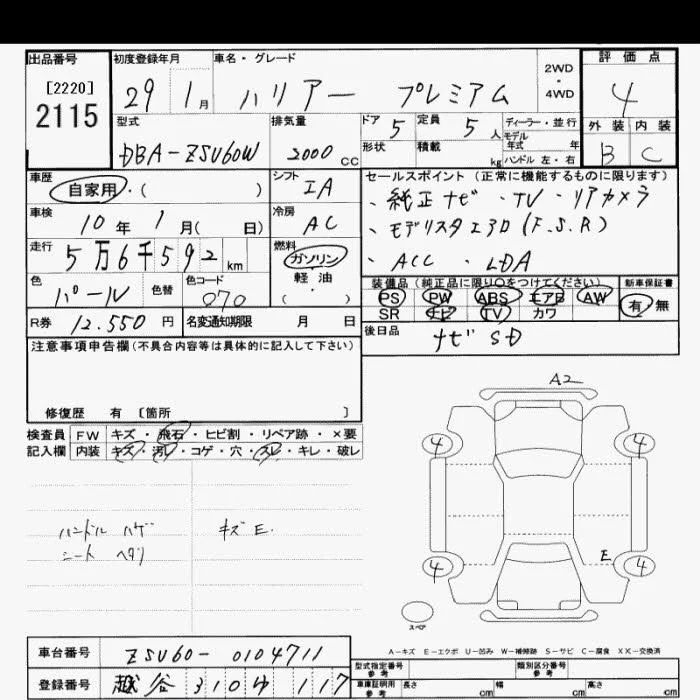 出品番号 初度登録年月 車名・グレード 評価点
[2220]
2115
29 1月 ハリアー プレミアム 2WD・4WD 4
型式 排気量 ドア 5 定員 5人 ディーラー・並行 外装 内装
DBA-ZSU60W 2000cc 形状 積載 kg モデル年式 年 ハンドル 左・右 B C
車歴 シフト セールスポイント(正常に機能するものに限ります)
自家用・( ) IA 、純正ナビ・TV・リアカメラ
車検 冷房 、モデリスタエアロ(F.S.R)
10年 1月( 日) AC 、ACC ・ LDA
走行 燃料
5万6千592km ガソリン
色 色替 色コード 軽油 装備品(純正品に限り○をつけてください) 新車保証書
パール 070 ( ) PS PW ABS エアB AW 有 無
SR ナビ TV カワ
R券 12.550円 名変通知期限 月 日 後日品 ナビSD
注意事項申告欄(不具合内容等は具体的に記入して下さい)
修復歴 有 [箇所 ]
A2
検査員 FW キズ・飛石・ヒビ割・リペア跡・×要
記入欄 内装 キズ・汚レ・コゲ・穴・スレ・キレ・破レ
4 4
ハンドル ハゲ キズ E.
シート ヘタリ
E
4 4
スペア
A-キズ E-エクボ U-凹み W-補修跡 S-サビ C-腐食 XX-交換済
車台番号 ZSU60-0104711
型式指定番号 参考 類別区分番号 参考
登録番号 越谷 310 ゆ 117
車庫証明用 参考 長さ cm 幅 cm 高さ cm